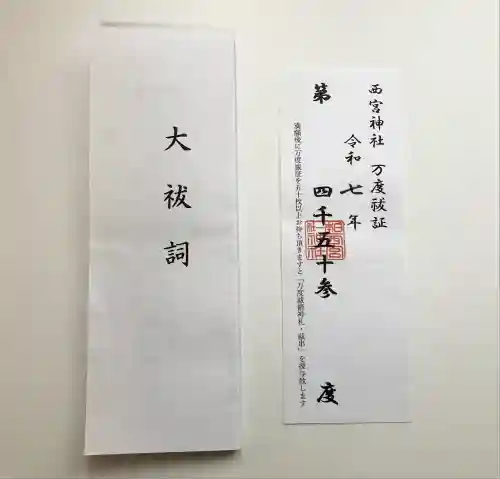 大祓詞
西宮神社 万度祓証
令和七年
第 四千五十参 度
満願後に万度祓証を五十枚以上お持ち頂きますと「万度祓剣御札・祓串」を授与致します